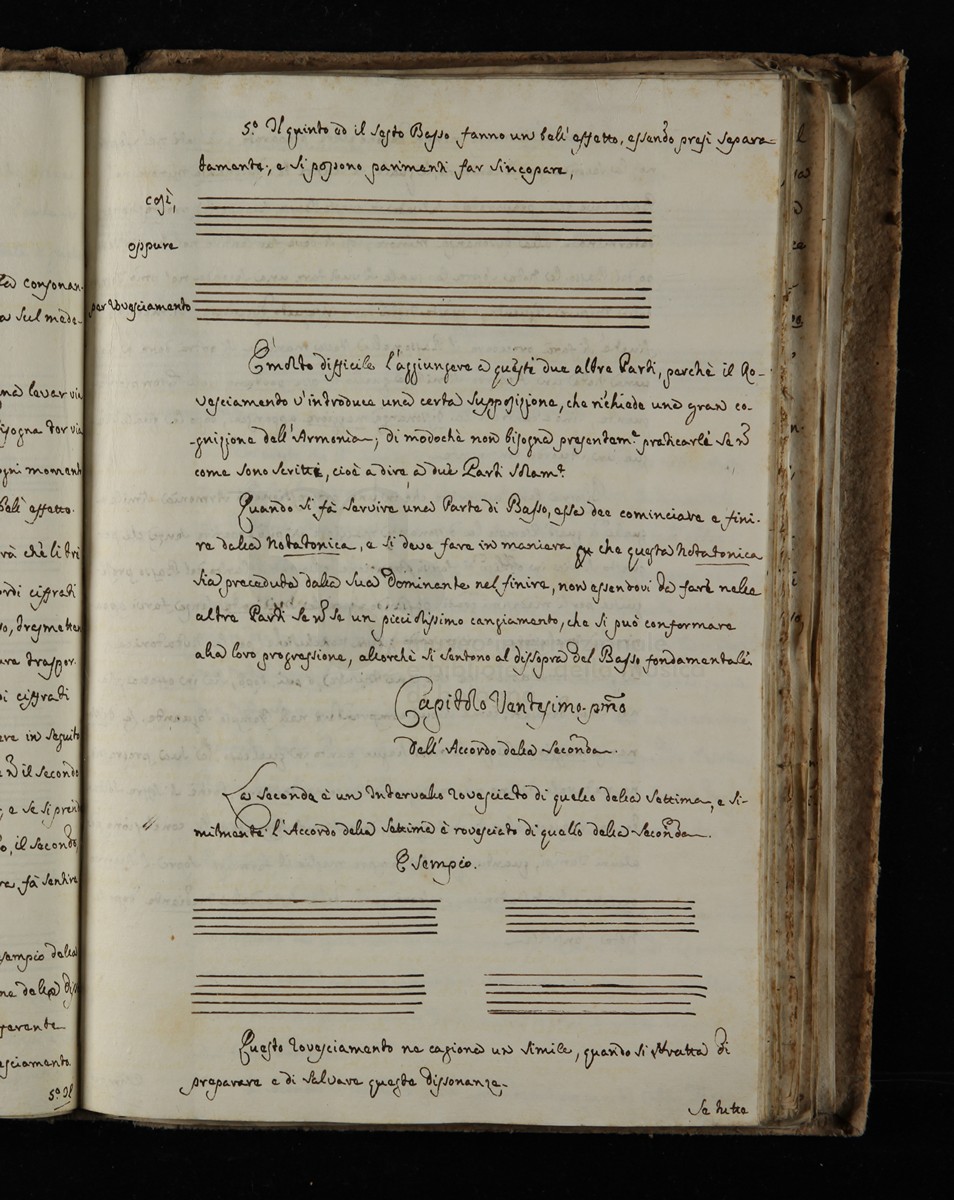 la consonan-
a sul mede-
na levar via
isogna tor via
ogni momento
bell' effetto.
rà che li tri
rdi cifrati
o, tresmette
are traspor.
i cifrati
ere in seguito
e ñ il secondo
, e se si prend
o, il secondo
re, fà sentire
sempio della
ferente
esciamento.
5.° Il
5.° Il quinto ed il sesto Basso fanno un bell' effetto, essendo presi separa-
tamente, e si possono parimenti far sincopare,
così,
oppure
per rovesciamento
È molto difficile l'aggiungere a queste due altre Parti, perchè il Ro-
vesciamento v'introduce una certa supposizione, che richiede una gran co-
-gnizione dell'Armonia; di modochè non bisogna presentem.e praticarle se ñ
come sono scritte, cioè a dire a due Parti solam.e
Quando si fà servire una Parte di Basso, esse dee cominciare e fini-
re dalla Notatonica, e si deve fare in maniera che questa Notatonica
sia preceduta dalla sua Dominante nel finire, non essendovi da fare nelle
altre Parti se ñ se un picciolissimo cangiamento, che si può conformare
alla loro progressione, allorchè si sentono al dissopra del Basso fondamentale.
Capitolo Ventesimo-pmo
Dell' Accordo della Seconda.
La Seconda è un Intervallo rovesciato di quello della Settima, e si-
milmente l'Accordo della Settima è rovesciato di quello della Seconda.
Esempio.
Questo rovesciamento ne cagiona un simile, quando si tratta di
preparare e di salvare queste dissonanze.
Se nelle